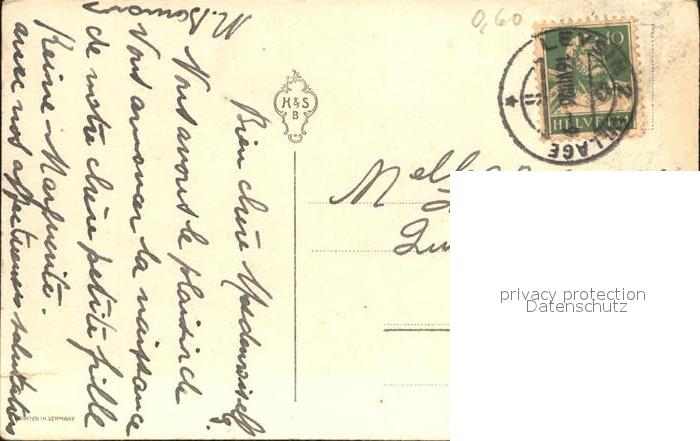 Bien chère Mademoiselle,
Vous avons le plaisir de
Vous annoncer la naissance
de notre chère petite fille
Reine-Marguerite.
avec nos affectueuses salutations
M.
0,60
10
HELVETIA
PLAGE
H&S
B
Melle
PRINTED IN GERMANY
privacy protection
Datenschutz